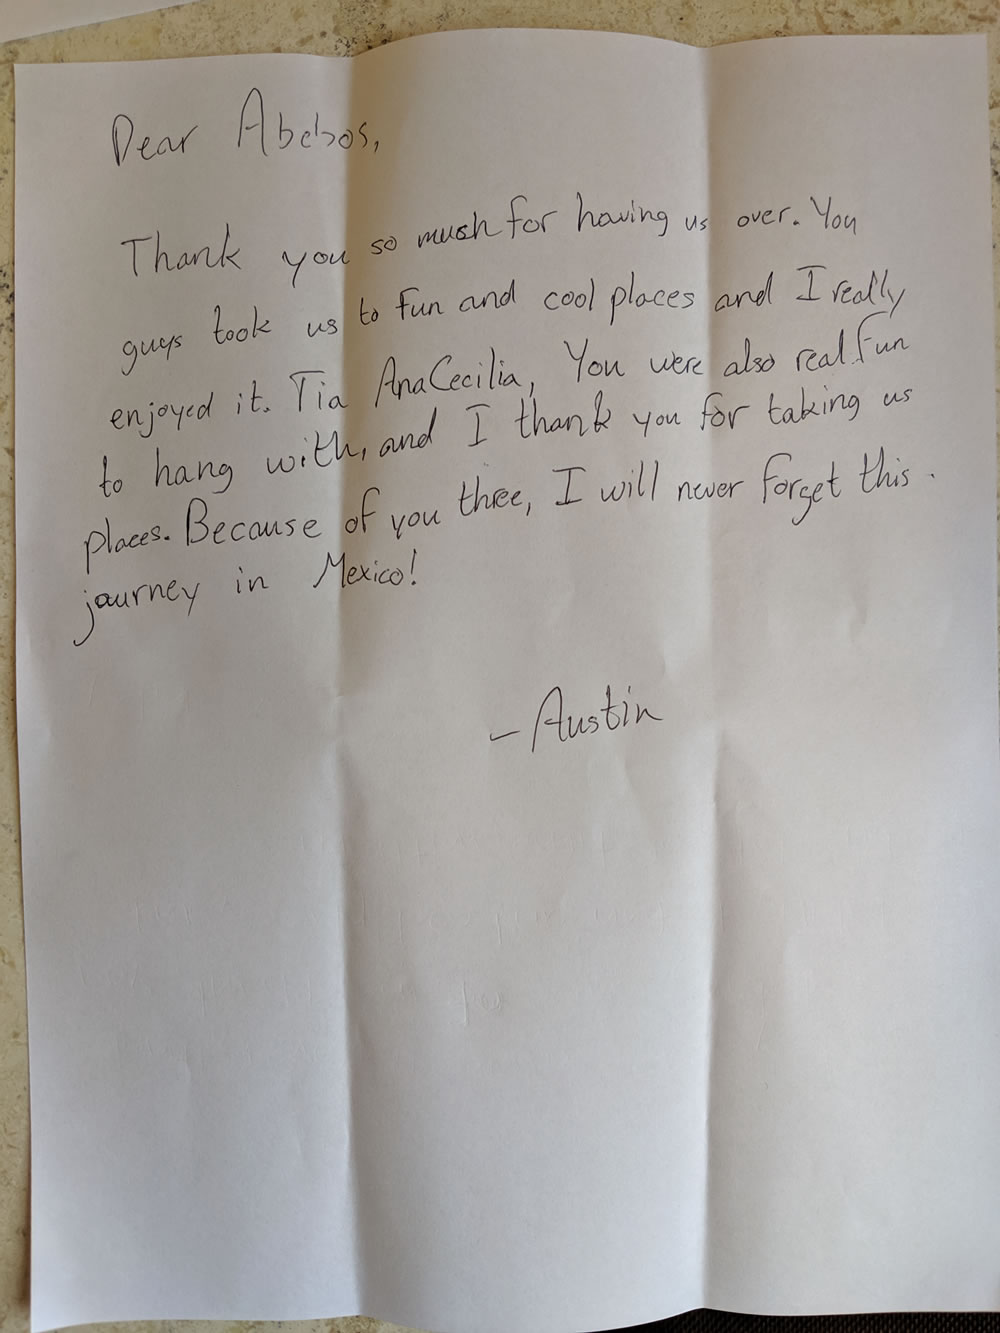 Dear Abebos,
Thank you so much for having us over. You
guys took us to fun and cool places and I really
enjoyed it. Tia AnaCecilia, You were also real fun
to hang with, and I thank you for taking us
places. Because of you three, I will never forget this.
journey in Mexico!
- Austin